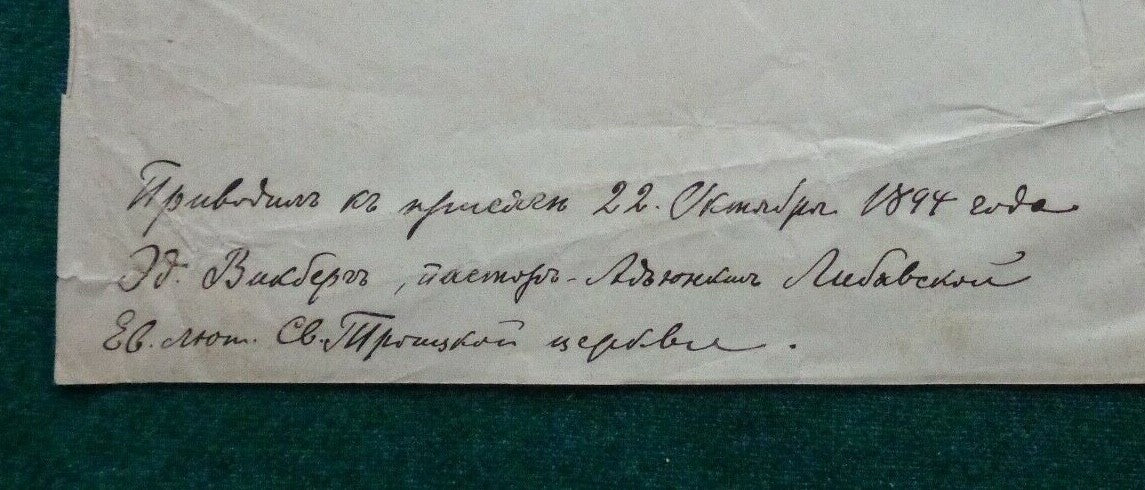 Приводилъ къ присягѣ 22. Октября 1894 года
Эд. Викбергъ, пасторъ-Адъюнктъ Либавской
Ев. лют. Св. Троицкой церкви.